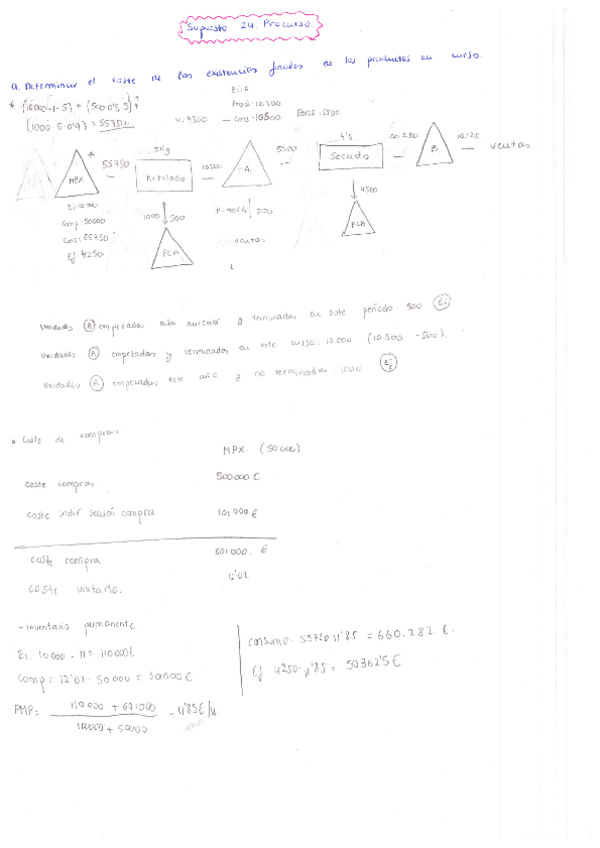 Supuesto 24. Procurso.
a. Determinar el coste de las existencias finales de los productos en curso.
* (10000·1·5) + (500·0'5·5) +
(1000·5·0'9) = 55750.
Ei: 0
Prod: 10.500
V: 4500 — Cons: 10500
5Kg
4's.
MPX
*
55750
mezclado
10500
A
5500
Secado
20.250
B
10.125
ventas
Comp: 50000
Cons: 55750
Ef 4250
1000
500
4500
PCA
PCA
ventas
Unidades (A) empezadas año anterior y terminadas en este período: 500 (Ei)
Unidades (A) empezadas y terminadas en este curso: 10.000 (10 500 - 500).
Unidades (A) empezadas este año y no terminadas: 1000 (Ef)
• Coste de compras:
MPX. (50000)
coste compras 500 000 €
coste indir sección compra 101 000 €
coste compra 601 000. €
coste unitario. 12'02
- Inventario permanente
Ei. 10 000 · 11 = 110 000€
Comp = 12'02 · 50 000 = 601000 €
PMP = 110 000 + 601 000 = 11'85€/u
consumo. 55720·11'85 = 660.282 €.
Ef 4250·11'85 = 50362'5 €